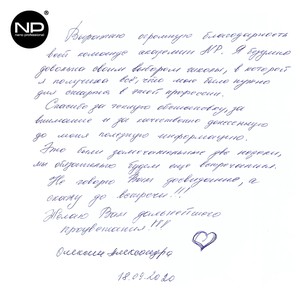 NP
nano professional
Выражаю огромную благодарность
всей команде академии NP. Я безумно
довольна своим выбором школы, в которой
я получила всё, что мне было нужно
для старта в этой профессии.
Спасибо за теплую обстановку, за
внимание и за качественно донесенную
до меня полезную информацию.
Это были замечательные две недели,
мы обязательно будем еще встречаться.
Не говорю Вам досвидания, а
скажу до встречи!!!
Желаю Вам дальнейшего
процветания!!!
Александра
18.09.2020